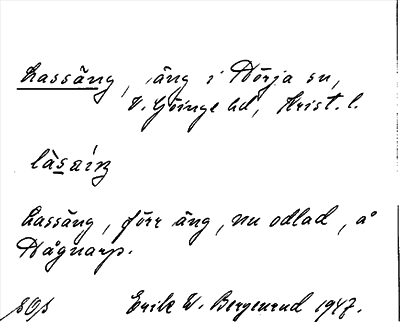 Lassäng, äng i Nörja sn,
V. Göinge hd, Krist. l.
làsaíŋ
Lassäng, förr äng, nu odlad, å
Hågnarp.
Erik W. Bergenrud 1947.